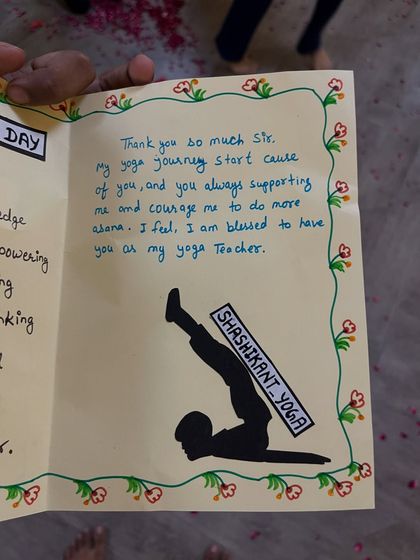 DAY
edge
powering
ng
nking
r.
Thank you so much Sir.
My yoga journey start cause
of you, and you always supporting
me and courage me to do more
asana. I feel, I am blessed to have
you as my yoga Teacher.
SHASHIKANT_YOGA